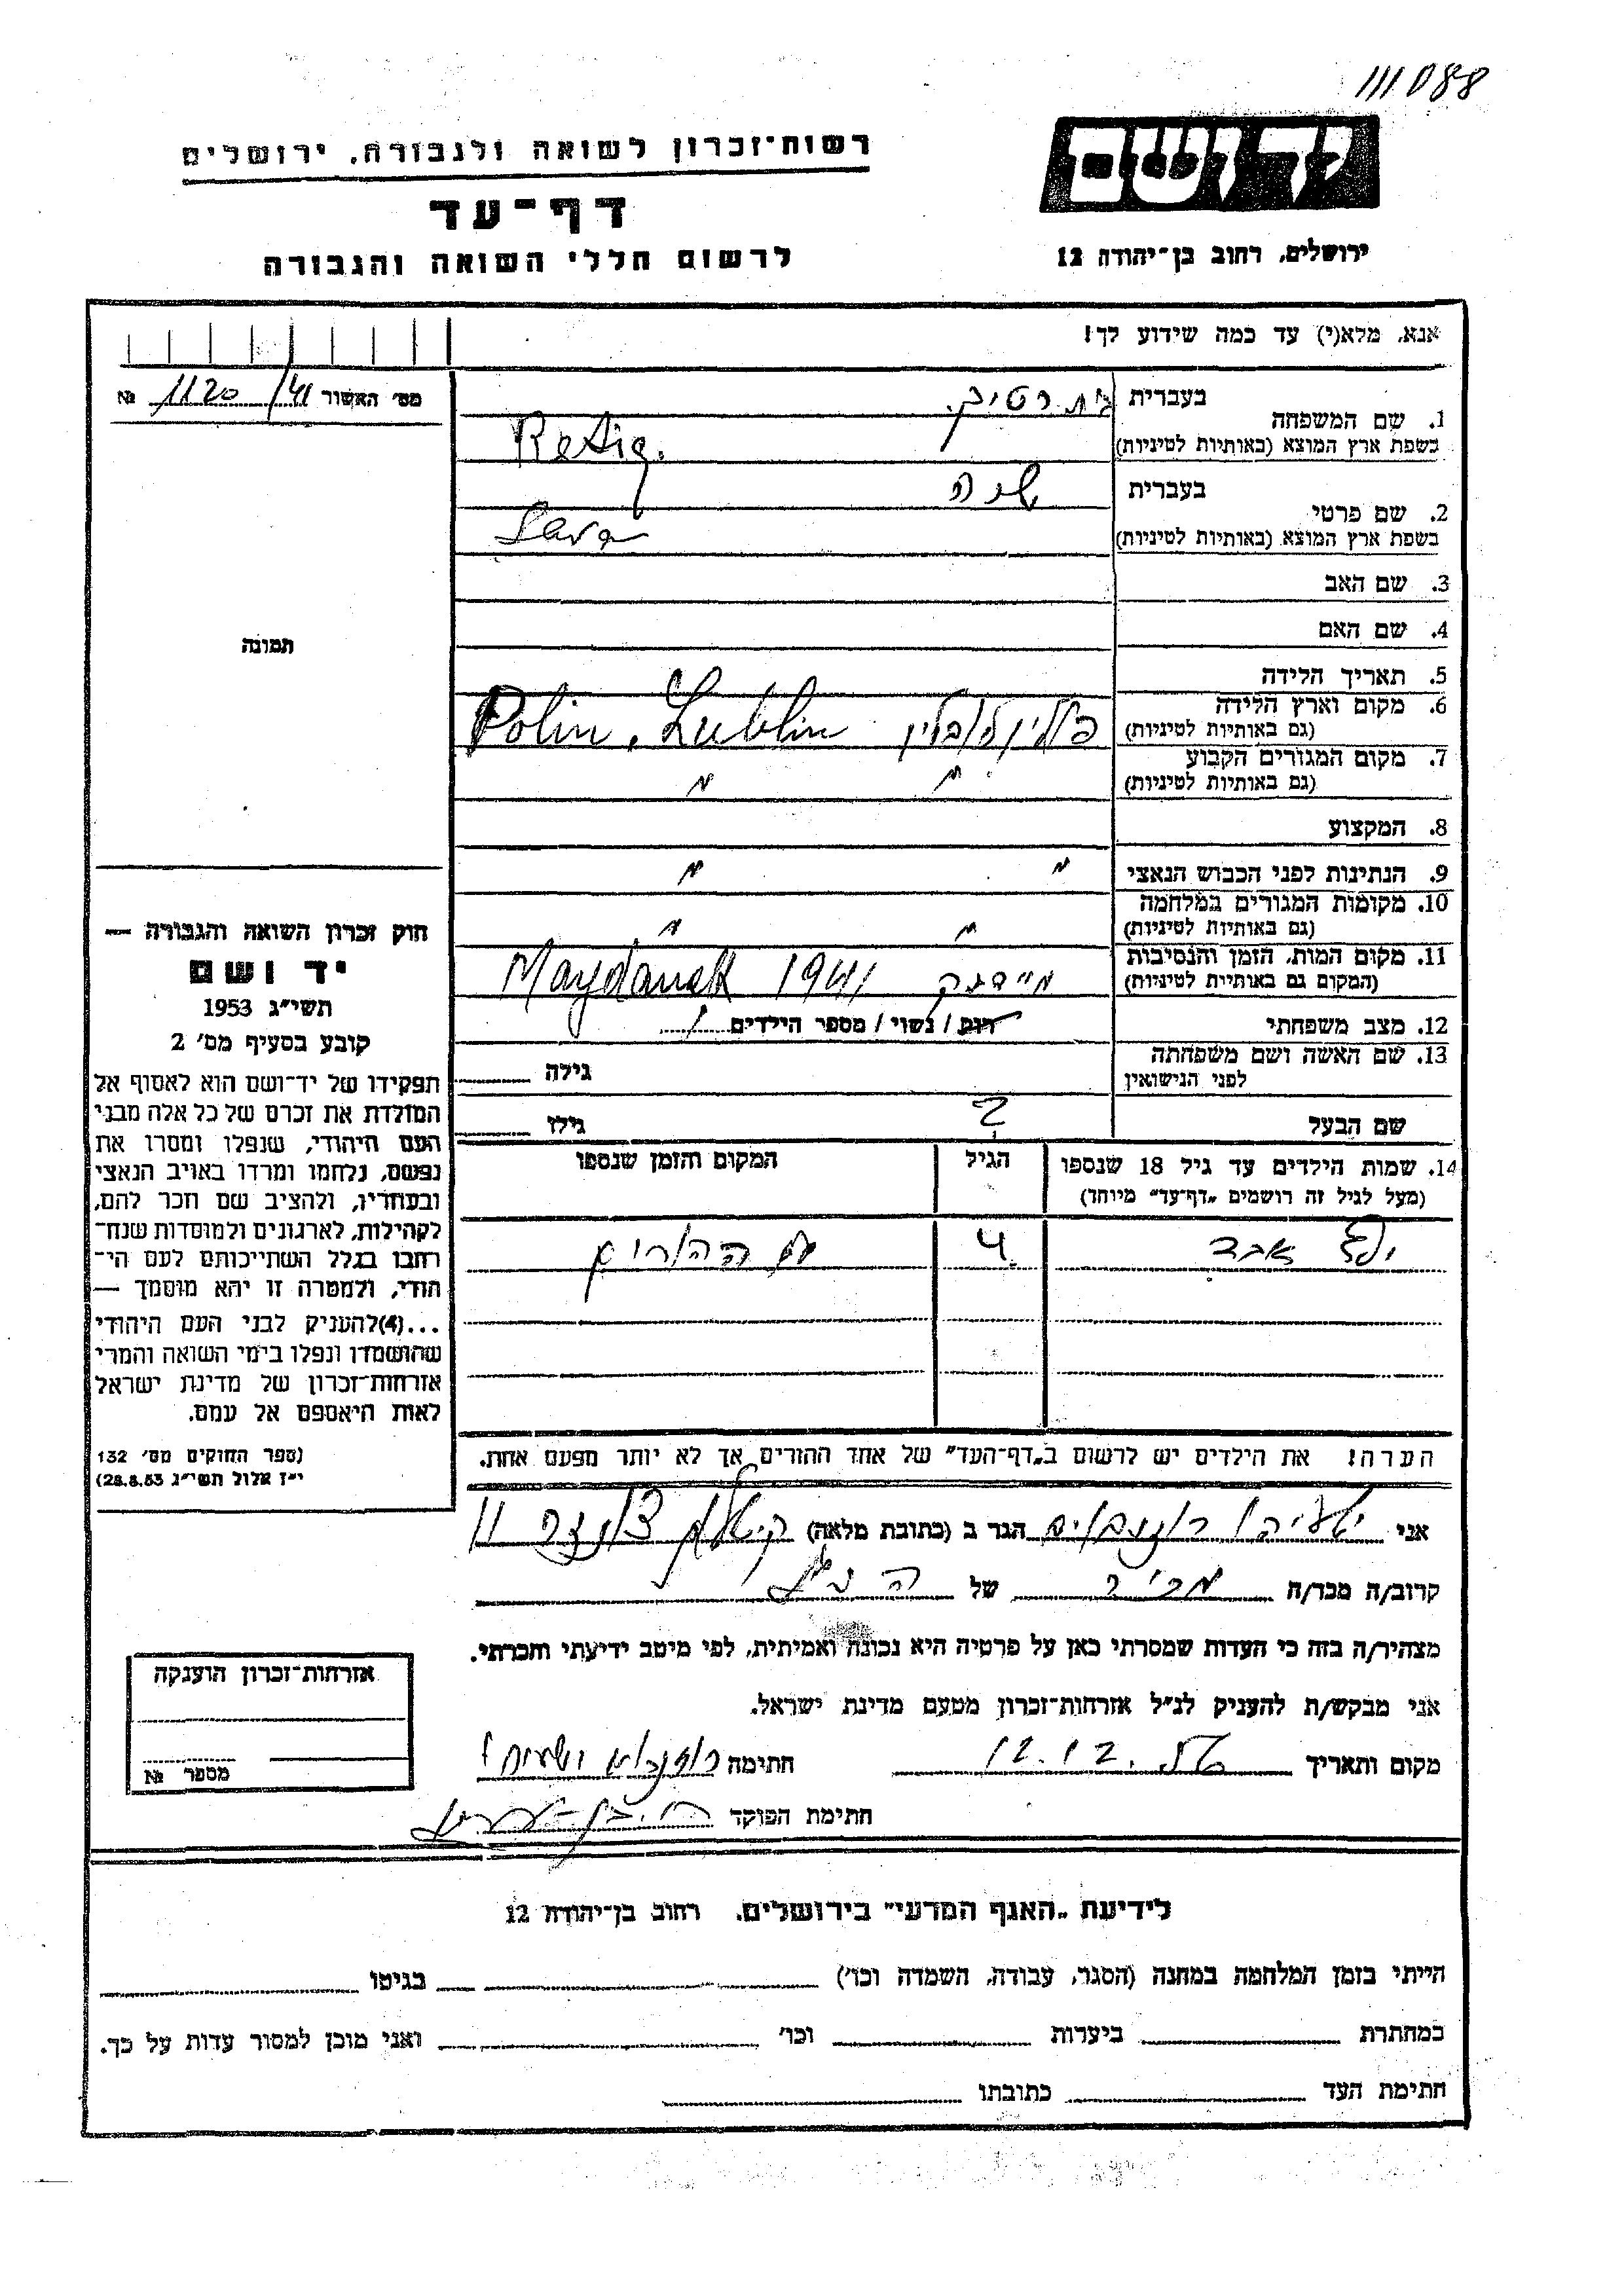 111088
רשות־זכרון לשואה ולגבורה, ירושלים
יד ושם
דף־עד
לרשום חללי השואה והגבורה
ירושלים, רחוב בן־יהודה 12
אנא, מלא(י) עד כמה שידוע לך!
מס׳ האשור 1120/41 №
1. שם המשפחה
בעברית רטיג.
בשפת ארץ המוצא (באותיות לטיניות) Retig.
2. שם פרטי
בעברית שרה
בשפת ארץ המוצא (באותיות לטיניות) Sara
3. שם האב
4. שם האם
תמונה
5. תאריך הלידה
6. מקום וארץ הלידה
(גם באותיות לטיניות) פולין לובלין Polin, Lublin
7. מקום המגורים הקבוע
(גם באותיות לטיניות) " "
8. המקצוע
9. הנתינות לפני הכבוש הנאצי " "
10. מקומות המגורים במלחמה
(גם באותיות לטיניות) " "
11. מקום המות, הזמן והנסיבות
(המקום גם באותיית לטיניות) מיידנק 1941 Maydanek
12. מצב משפחתי רוק / נשוי / מספר הילדים 1
13. שם האשה ושם משפחתה
לפני הנישואין
גילה
שם הבעל ? גילו
14. שמות הילדים עד גיל 18 שנספו
(מעל לגיל זה רושמים „דף־עד” מיוחד)
הגיל
המקום והזמן שנספו
ילד אבד 4 עם ההורים
הערה! את הילדים יש לרשום ב„דף־העד” של אחד ההורים אך לא יותר מפעם אחת.
חוק זכרון השואה והגבורה —
יד ושם
תשי״ג 1953
קובע בסעיף מס׳ 2
תפקידו של יד־ושם הוא לאסוף אל
המולדת את זכרם של כל אלה מבני
העם היהודי, שנפלו ומסרו את
נפשם, נלחמו ומרדו באויב הנאצי
ובעוזריו, ולהציב שם וזכר להם,
לקהילות, לארגונים ולמוסדות שנח־
רחבו בגלל השתייכותם לעם הי־
הודי, ולמטרה זו יהא מוסמך —
...(4)להעניק לבני העם היהודי
שהושמדו ונפלו בימי השואה והמרי
אזרחות־זכרון של מדינת ישראל
לאות היאספם אל עמם.
(ספר החוקים מס׳ 132
י״ז אלול תשי״ג 28.8.53)
אני ישעיהו הגר ב (כתובת מלאה) 11
קרוב/ה מכר/ה מכיר של הנ״ל
מצהיר/ה בזה כי העדות שמסרתי כאן על פרטיה היא נכונה ואמיתית, לפי מיטב ידיעתי והכרתי.
אני מבקש/ת להעניק לנ״ל אזרחות־זכרון מטעם מדינת ישראל.
מקום ותאריך 12.12. חתימה
חתימת הפוקד
אזרחות־זכרון הוענקה
מספר №
לידיעת „האגף המדעי” בירושלים, רחוב בן־יהודה 12
הייתי בזמן המלחמה במחנה (הסגר, עבודה, השמדה וכו׳) בגיטו
במחתרת ביערות וכו׳ ואני מוכן למסור עדות על כך.
חתימת העד כתובתו